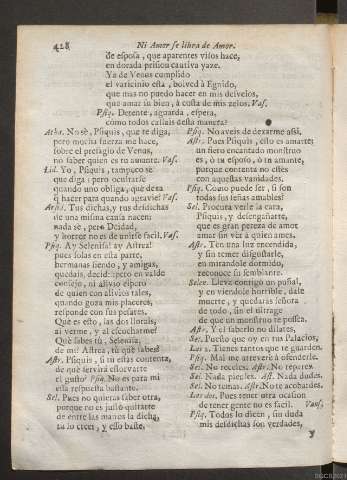 428
Ni Amor se libra de Amor.
de esposa, que aparentes visos hace,
en dorada prision cautiva yaze.
Ya de Venus cumplido
el vaticinio està, bolved à Egnido,
que mas no puedo hacer en mis desvelos,
que amar su bien, à costa de mis zelos. Vas.
Psiq. Detente, aguarda, espera,
còmo todos callais desta manera?
Atha. No sè, Psiquis, que te diga,
pero mucha fuerza me hace,
sobre el presagio de Venus,
no saber quien es tu amante. Vas.
Lid. Yo, Psiquis, tampoco sè
que diga; pero ocultarse
quando uno obliga, què dexa
q̃ hacer para quando agravie? Vas.
Arsid. Tus dichas, y tus desdichas
de una misma causa nacen:
nada sè, pero Deidad,
y horror no es de unirse facil. Vas.
Psiq. Ay Selenisa! ay Astrea!
pues solas en esta parte,
hermanas siendo, y amigas,
quedais, decid: pero en valde
consejo, ni alivio espero
de quien con alivios tales,
quando goza mis placeres,
responde con sus pesares.
Què es esto, las dos llorais,
al verme, y al escucharme?
Què sabes tù, Selenisa,
de mi? Astrea, tù què sabes?
Astr. Psiquis, si tu estàs contenta,
de què servirà estorvarte
el gusto? Psiq. No es para mi
essa respuesta bastante.
Sel. Pues no quieras saber otra,
porque no es justo quitarte
de entre las manos la dicha,
tu lo crees, y esso baste.
Psiq. No aveis de dexarme assi.
Astr. Pues Psiquis, esso es amarte;
un fiero encantado monstruo
es, ò tu esposo, ò tu amante,
porque contenta no estès
con aquestas vanidades.
Psiq. Còmo puede ser, si son
todas sus señas amables?
Sel. Procura verle la cara,
Psiquis, y desengañarte,
que es gran pereza de amor
amar sin vèr à quien amas.
Astr. Ten una luz encendida,
y sin temer disgustarle,
en mirandole dormido,
reconoce su semblante.
Selen. Lleva contigo un puñal,
y en viendole horrible, dale
muerte, y quedaràs señora
de todo, sin el ultrage
de que un monstruo te possea.
Astr. Y el saberlo no dilates.
Sel. Puesto que oy en tus Palacios,
Las 2. Tienes tantos que te guarden.
Psiq. Mal me atreverè à ofenderle.
Sel. No receles. Astr. No repares
Sel. Nada pierdes. Ast. Nada dudes.
Sel. No temas. Astr. No te acobardes.
Las dos. Pues tener otra ocasion
de tener gente no es facil. Vans.
Psiq. Todos lo dicen, sin duda
mis desdichas son verdades,
y